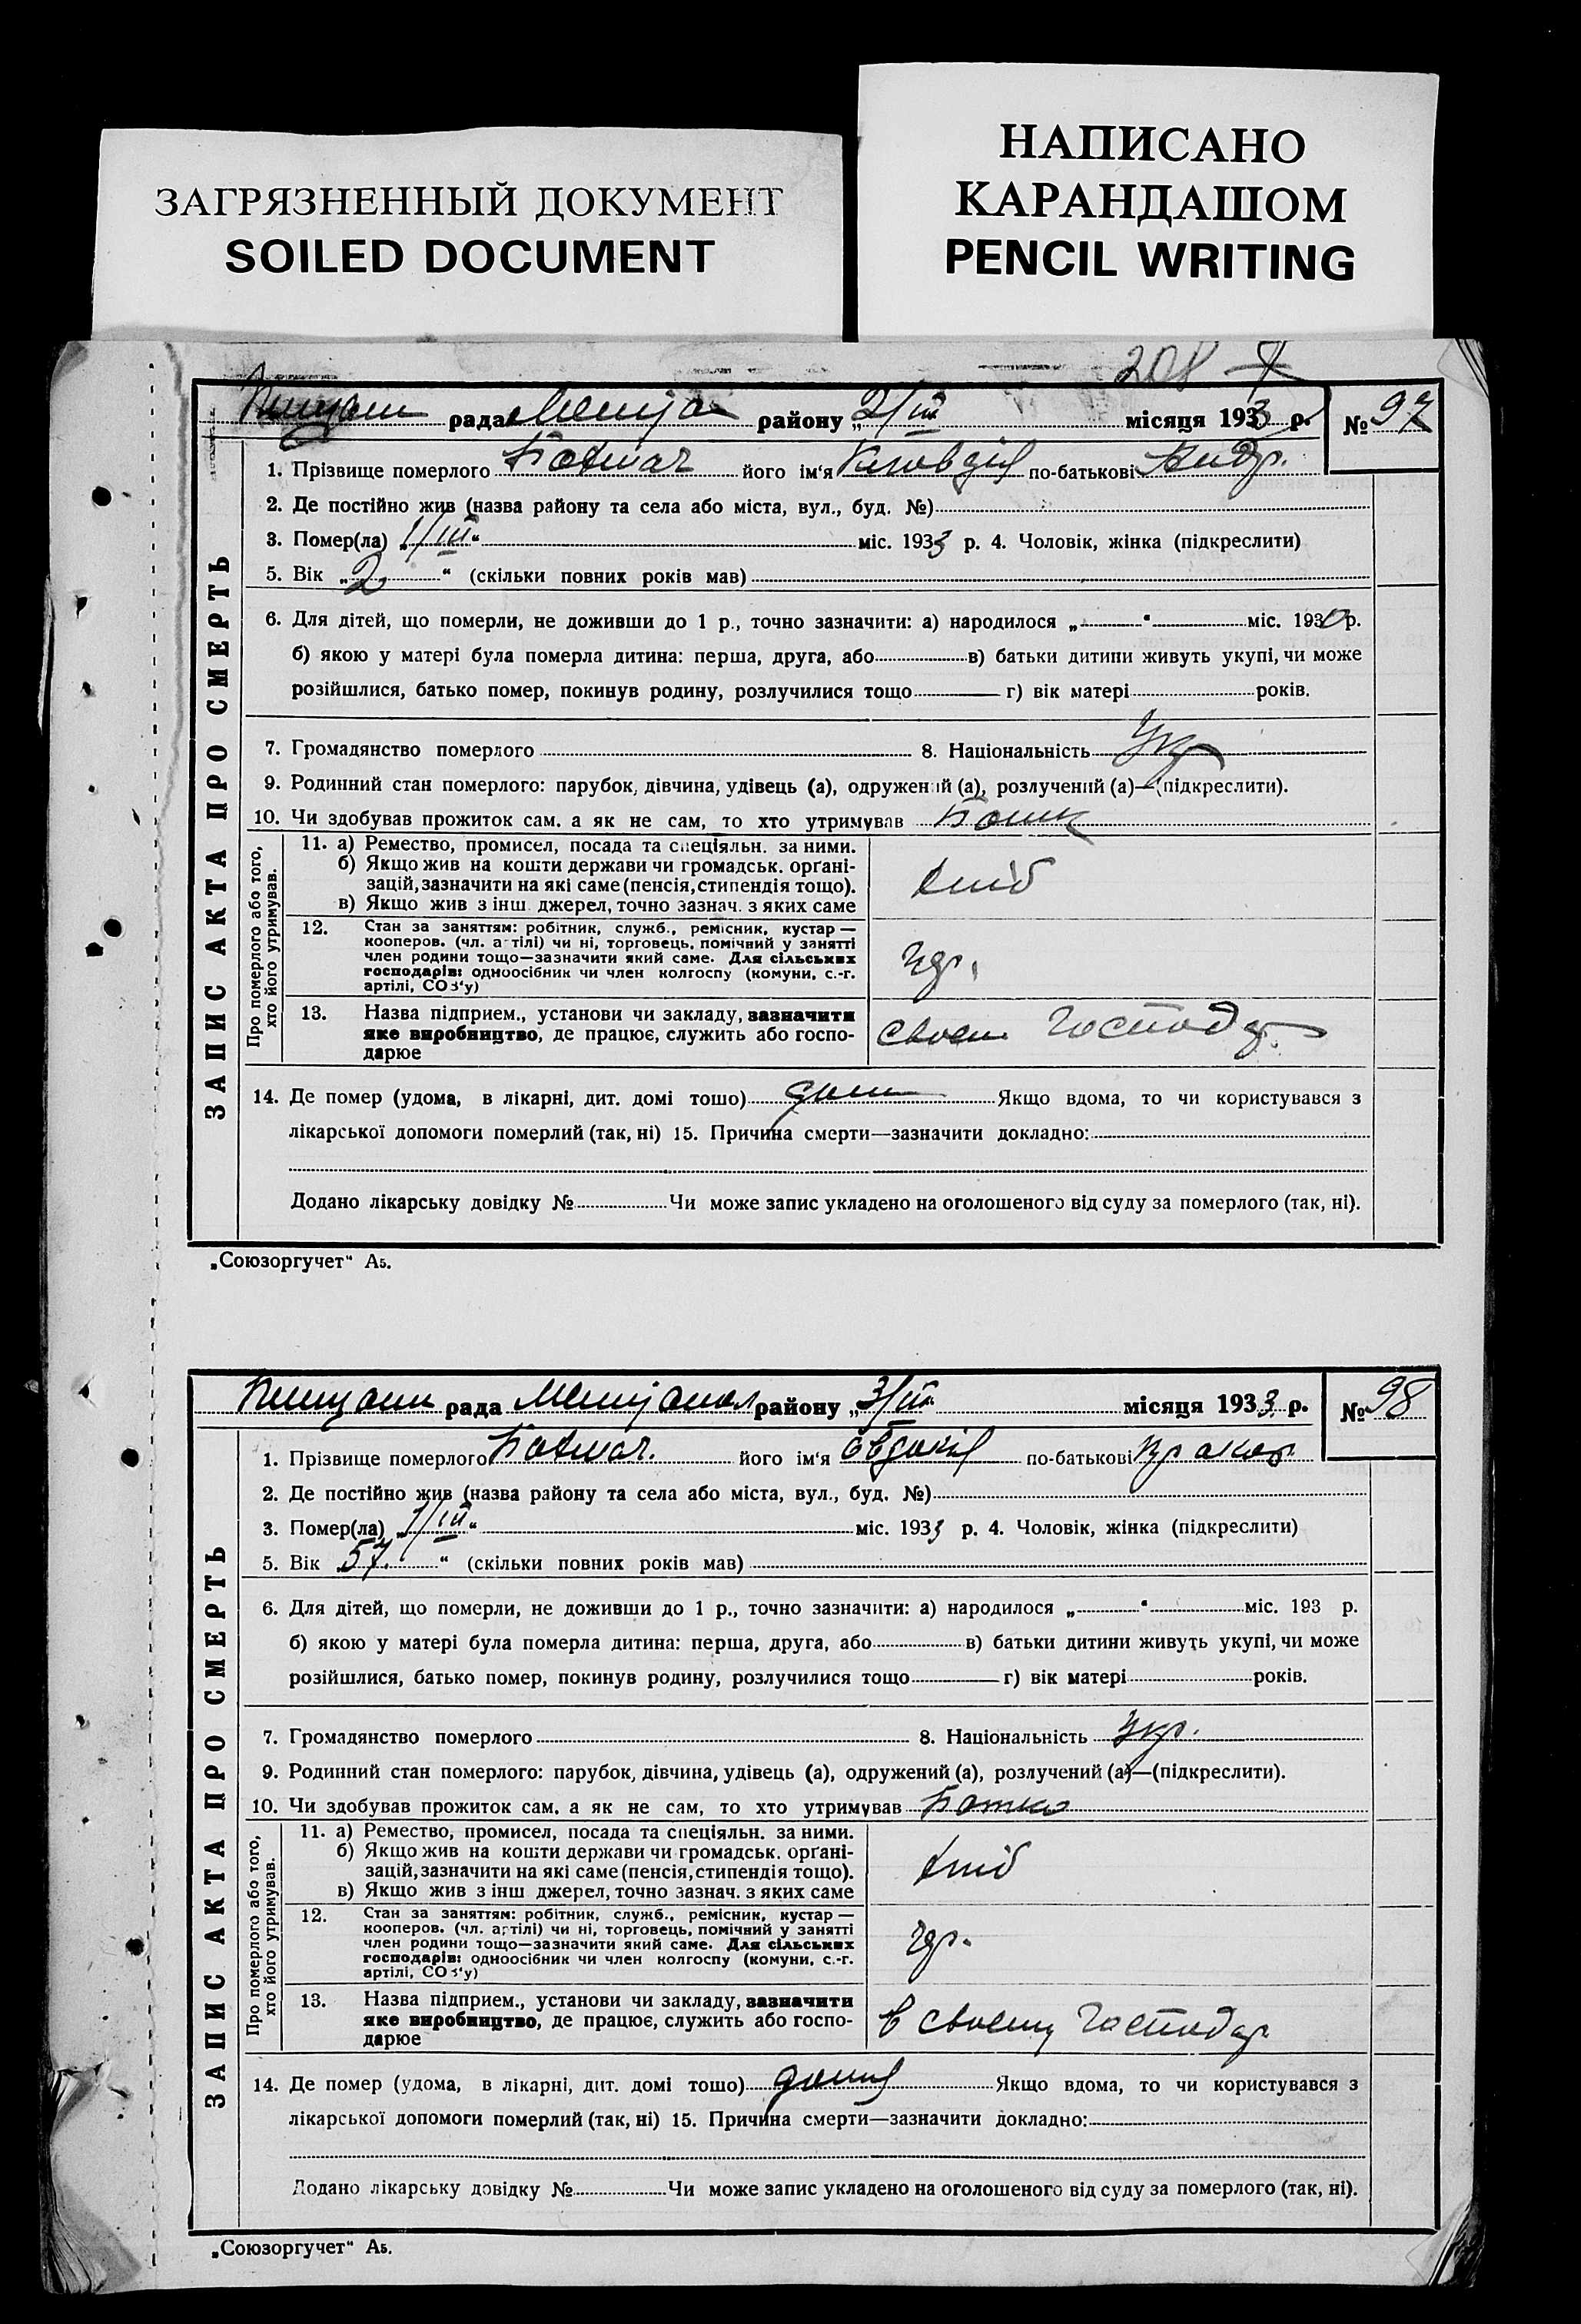 ЗАГРЯЗНЕННЫЙ ДОКУМЕНТ
SOILED DOCUMENT
НАПИСАНО
КАРАНДАШОМ
PENCIL WRITING
208
рада району „2/III місяця 1933 р. № 97
ЗАПИС АКТА ПРО СМЕРТЬ
1. Прізвище померлого його ім'я по-батькові Андр.
2. Де постійно жив (назва району та села або міста, вул., буд. №)
3. Помер(ла) „1/III“ міс. 1933 р. 4. Чоловік, жінка (підкреслити)
5. Вік „2“ (скільки повних років мав)
6. Для дітей, що померли, не доживши до 1 р., точно зазначити: а) народилося „ “ міс. 1930 р.
б) якою у матері була померла дитина: перша, друга, або в) батьки дитини живуть укупі, чи може
розійшлися, батько помер, покинув родину, розлучилися тощо г) вік матері років.
7. Громадянство померлого 8. Національність Укр
9. Родинний стан померлого: парубок, дівчина, удівець (а), одружений (а), розлучений (а)—(підкреслити).
10. Чи здобував прожиток сам, а як не сам, то хто утримував
Про померлого або того,
хто його утримував.
11. а) Ремество, промисел, посада та спеціяльн. за ними.
б) Якщо жив на кошти держави чи громадськ. орґані-
зацій, зазначити на які саме (пенсія, стипендія тощо).
в) Якщо жив з інш. джерел, точно зазнач. з яких саме
хліб
12. Стан за заняттям: робітник, служб., ремісник, кустар —
кооперов. (чл. артілі) чи ні, торговець, помічний у занятті
член родини тощо—зазначити який саме. Для сільських
господарів: одноосібник чи член колгоспу (комуни, с.-г.
артілі, СОЗ'у)
13. Назва підприєм., установи чи закладу, зазначити
яке виробництво, де працює, служить або госпо-
дарює
своєм господар
14. Де помер (удома, в лікарні, дит. домі тощо) дома Якщо вдома, то чи користувався з
лікарської допомоги померлий (так, ні) 15. Причина смерти—зазначити докладно:
Додано лікарську довідку № Чи може запис укладено на оголошеного від суду за померлого (так, ні).
„Союзоргучет“ А5.
рада району „3/III місяця 1933 р. № 98
ЗАПИС АКТА ПРО СМЕРТЬ
1. Прізвище померлого його ім'я Євдокія по-батькові
2. Де постійно жив (назва району та села або міста, вул., буд. №)
3. Помер(ла) „1/III“ міс. 1933 р. 4. Чоловік, жінка (підкреслити)
5. Вік 57. “ (скільки повних років мав)
6. Для дітей, що померли, не доживши до 1 р., точно зазначити: а) народилося „ “ міс. 193 р.
б) якою у матері була померла дитина: перша, друга, або в) батьки дитини живуть укупі, чи може
розійшлися, батько помер, покинув родину, розлучилися тощо г) вік матері років.
7. Громадянство померлого 8. Національність Укр.
9. Родинний стан померлого: парубок, дівчина, удівець (а), одружений (а), розлучений (а)—(підкреслити).
10. Чи здобував прожиток сам, а як не сам, то хто утримував
Про померлого або того,
хто його утримував.
11. а) Ремество, промисел, посада та спеціяльн. за ними.
б) Якщо жив на кошти держави чи громадськ. орґані-
зацій, зазначити на які саме (пенсія, стипендія тощо).
в) Якщо жив з інш. джерел, точно зазнач. з яких саме
хліб
12. Стан за заняттям: робітник, служб., ремісник, кустар —
кооперов. (чл. артілі) чи ні, торговець, помічний у занятті
член родини тощо—зазначити який саме. Для сільських
господарів: одноосібник чи член колгоспу (комуни, с.-г.
артілі, СОЗ'у)
13. Назва підприєм., установи чи закладу, зазначити
яке виробництво, де працює, служить або госпо-
дарює
в своєму господар
14. Де помер (удома, в лікарні, дит. домі тощо) дома Якщо вдома, то чи користувався з
лікарської допомоги померлий (так, ні) 15. Причина смерти—зазначити докладно:
Додано лікарську довідку № Чи може запис укладено на оголошеного від суду за померлого (так, ні).
„Союзоргучет“ А5.